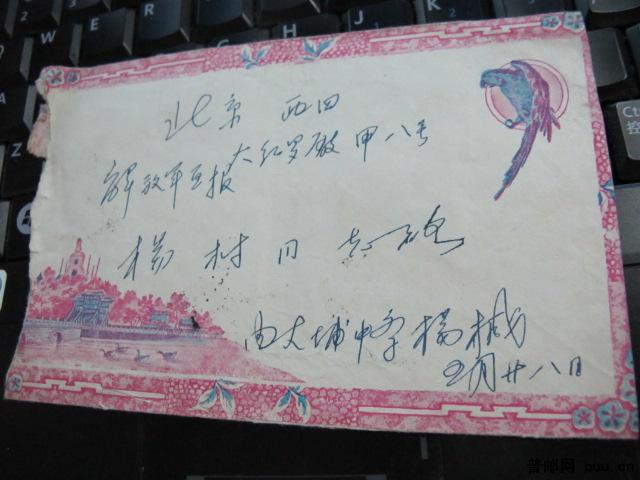 北京 西四
大红罗厰 甲八号
解放军画报
杨 村 同 志
由大埔中学 杨
五月廿八日
普邮网 puu.cn